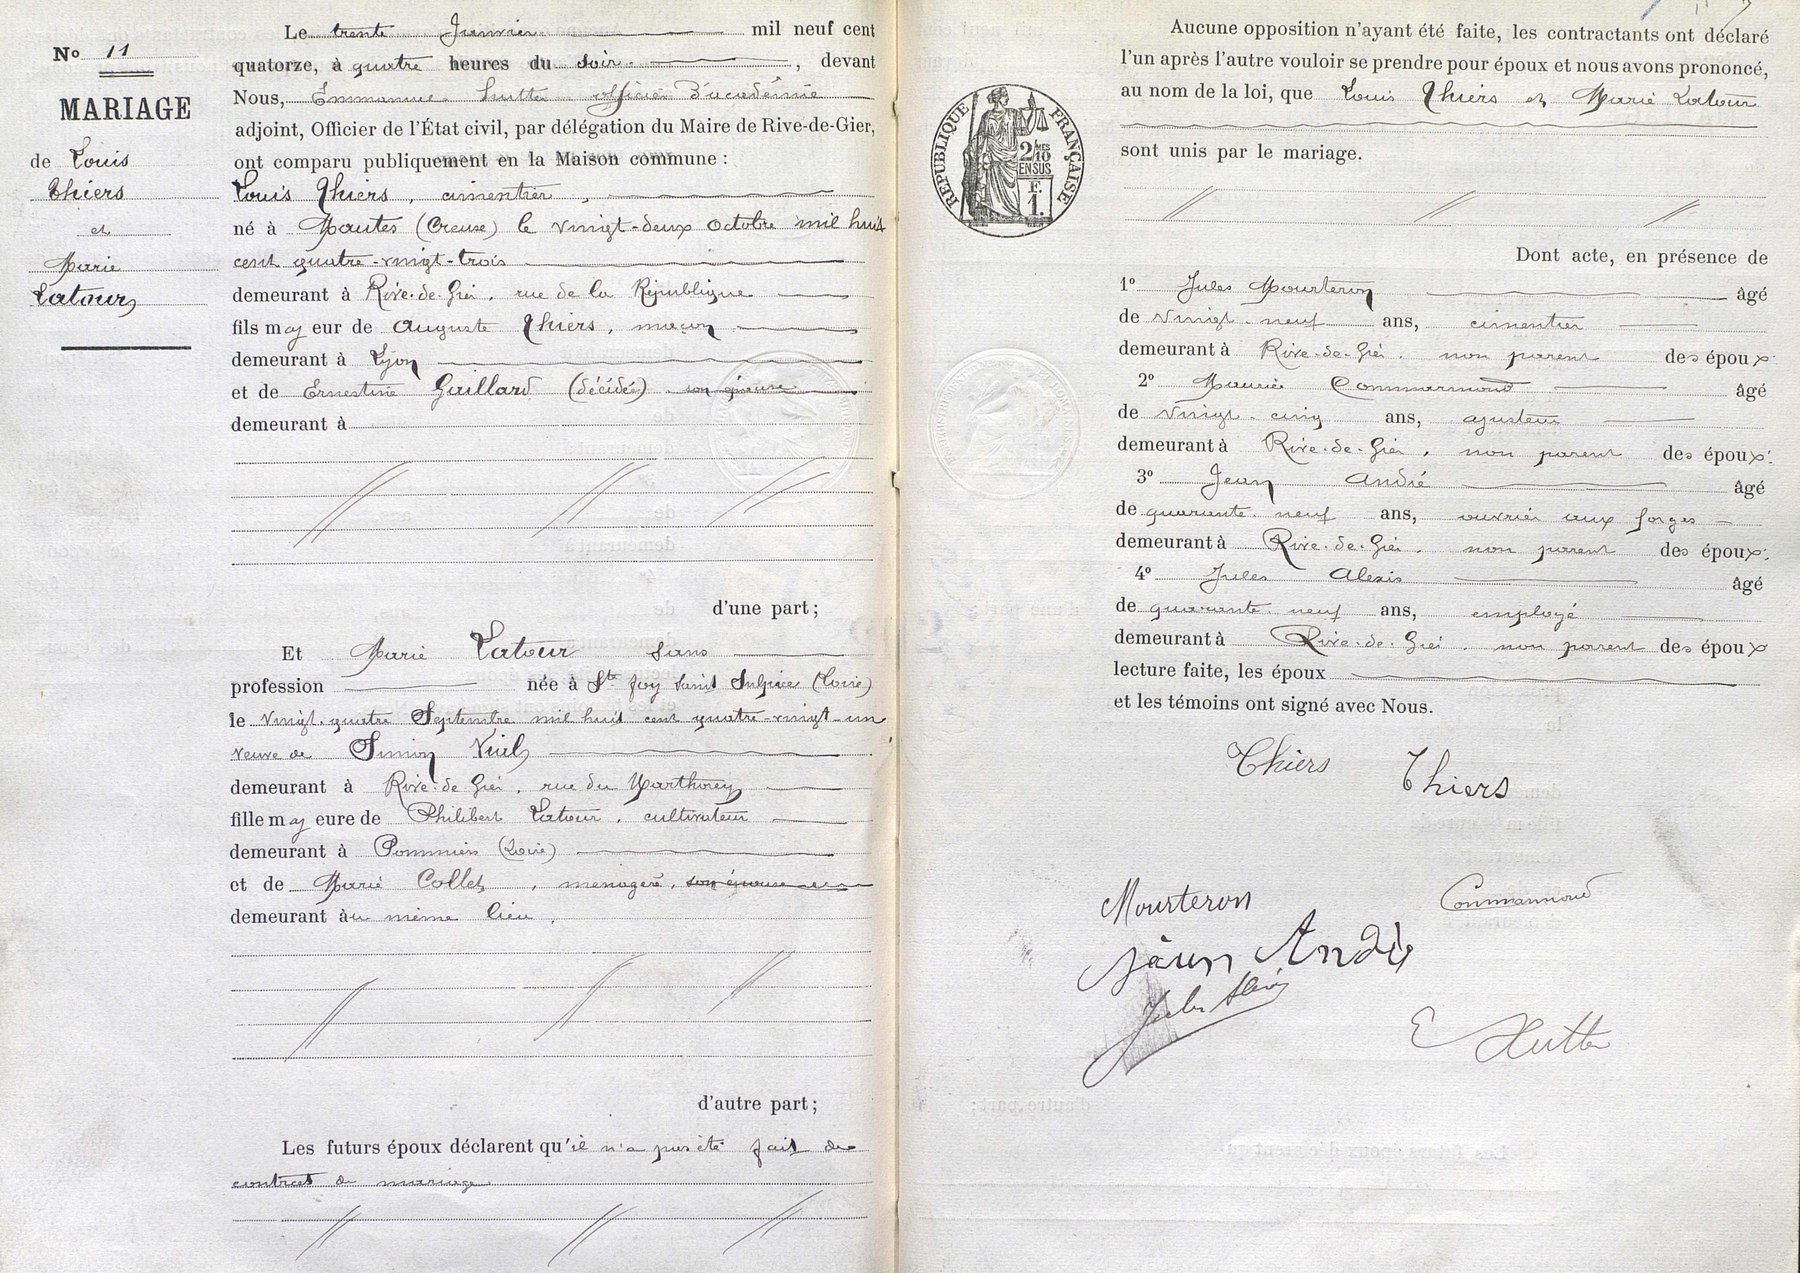 No 11
MARIAGE
de Louis
Thiers
et
Marie
Latour
Le trente Janvier mil neuf cent
quatorze, à quatre heures du soir, devant
Nous, Emmanuel Hutter officier d'académie
adjoint, Officier de l'État civil, par délégation du Maire de Rive-de-Gier,
ont comparu publiquement en la Maison commune :
Louis Thiers, cimentier,
né à Mautes (Creuse) le vingt-deux octobre mil huit
cent quatre-vingt-trois
demeurant à Rive-de-Gier, rue de la République
fils majeur de Auguste Thiers, maçon
demeurant à Lyon
et de Ernestine Gaillard (décédée) son épouse
demeurant à
d'une part ;
Et Marie Latour sans
profession née à Ste Foy Saint Sulpice (Loire)
le vingt-quatre Septembre mil huit cent quatre-vingt-un
veuve de Simon Vial
demeurant à Rive-de-Gier, rue du Marthorey
fille majeure de Philibert Latour, cultivateur
demeurant à Pommiers (Loire)
et de Marie Collet, ménagère, son épouse
demeurant au même lieu.
d'autre part ;
Les futurs époux déclarent qu'il n'a pas été fait de
contrat de mariage
Aucune opposition n'ayant été faite, les contractants ont déclaré
l'un après l'autre vouloir se prendre pour époux et nous avons prononcé,
au nom de la loi, que Louis Thiers et Marie Latour
sont unis par le mariage.
RÉPUBLIQUE FRANÇAISE
2/10MES
EN SUS
F.
1.
Dont acte, en présence de
1o Jules Mourteron âgé
de vingt-neuf ans, cimentier
demeurant à Rive-de-Gier, non parent des époux
2o Maurice Commarmond âgé
de vingt-cinq ans, ajusteur
demeurant à Rive-de-Gier, non parent des époux.
3o Jean André âgé
de quarante-neuf ans, ouvrier aux forges
demeurant à Rive-de-Gier, non parent des époux.
4o Jules Alexis âgé
de quarante-neuf ans, employé
demeurant à Rive-de-Gier, non parent des époux
lecture faite, les époux
et les témoins ont signé avec Nous.
Thiers Thiers
Mourteron Commarmond
jean André
Jules Alexis
E Hutter